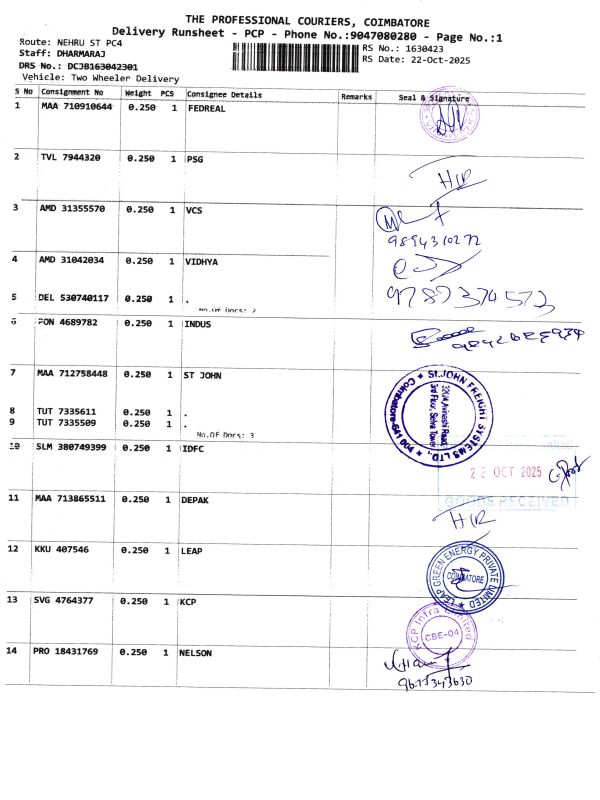 THE PROFESSIONAL COURIERS, COIMBATORE
Delivery Runsheet - PCP - Phone No.:9047080280 - Page No.:1
Route: NEHRU ST PC4
RS No.: 1630423
Staff: DHARMARAJ
RS Date: 22-Oct-2025
DRS No.: DCJB163042301
Vehicle: Two Wheeler Delivery
S No Consignment No Weight PCS Consignee Details Remarks Seal & Signature
1 MAA 710910644 0.250 1 FEDREAL
2 TVL 7944320 0.250 1 PSG
H/R
3 AMD 31355570 0.250 1 VCS
9894310272
4 AMD 31042034 0.250 1 VIDHYA
5 DEL 530740117 0.250 1 .
9787374573
No.Of Docs: 2
6 PON 4689782 0.250 1 INDUS
7 MAA 712758448 0.250 1 ST JOHN
St.JOHN FREIGHT SYSTEMS LTD.,
Coimbatore-641 004
8 TUT 7335611 0.250 1 .
9 TUT 7335509 0.250 1 .
No.Of Docs: 3
10 SLM 380749399 0.250 1 IDFC
22 OCT 2025
GOODS RECEIVED
11 MAA 713865511 0.250 1 DEPAK
H/R
12 KKU 407546 0.250 1 LEAP
LEAP GREEN ENERGY PRIVATE LIMITED
COIMBATORE
13 SVG 4764377 0.250 1 KCP
KCP Infra Limited
CBE-04
14 PRO 18431769 0.250 1 NELSON